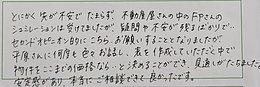 とにかく先が不安でたまらず、不動産屋さんの中のFPさんの
シュミレーションは受けましたが、疑問や不安が残るばかりで…
セカンドオピニオン的にこちらへお願いすることとなりましたが
平原さんに何度も色々お話しし、表を作成していただく中で
物件をここまでの価格なら…と決めることができ、見通しがたちました。
安心感があり、本当にご相談できて良かったです。